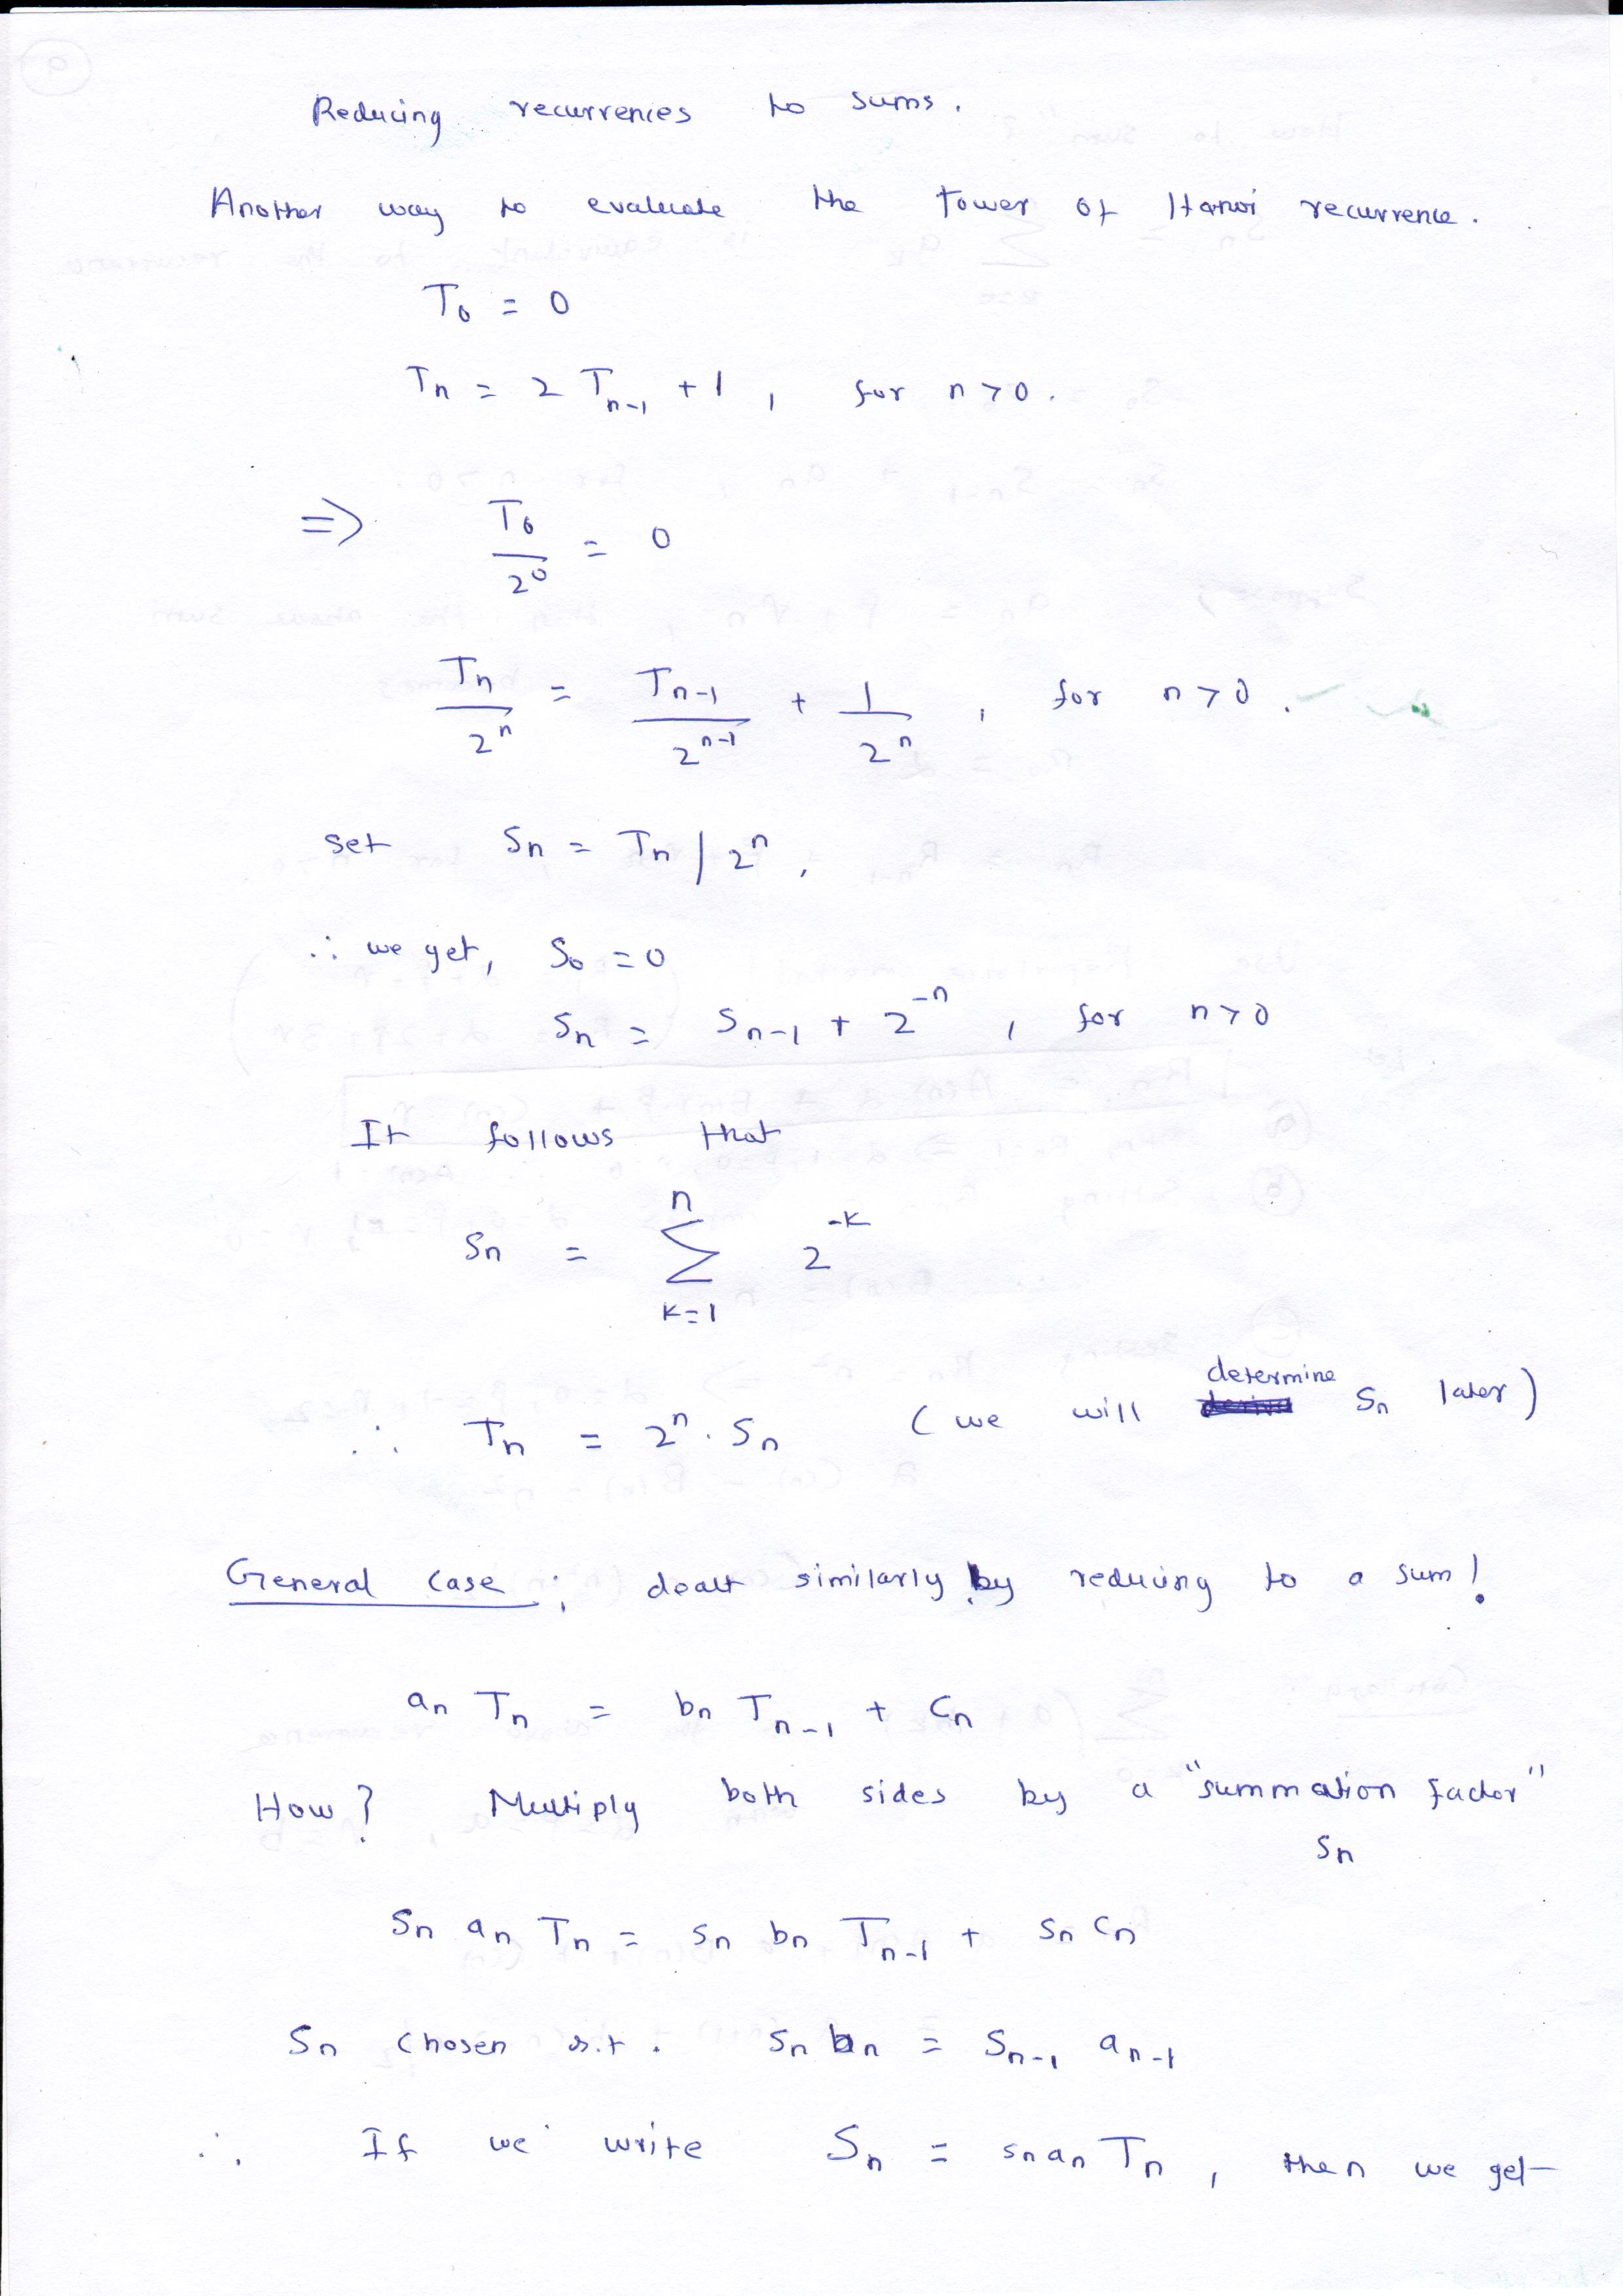 Reducing recurrences to sums.
Another way to evaluate the Tower of Hanoi recurrence.
T₀ = 0
Tₙ = 2 Tₙ₋₁ + 1, for n > 0.
=> T₀/2⁰ = 0
Tₙ/2ⁿ = Tₙ₋₁/2ⁿ⁻¹ + 1/2ⁿ, for n > 0.
set Sₙ = Tₙ / 2ⁿ,
∴ we get, S₀ = 0
Sₙ = Sₙ₋₁ + 2⁻ⁿ, for n > 0
It follows that
Sₙ = ∑_{k=1}^{n} 2^{-k}
∴ Tₙ = 2ⁿ · Sₙ (we will determine Sₙ later)
General case: dealt similarly by reducing to a sum!
aₙ Tₙ = bₙ Tₙ₋₁ + cₙ
How? Multiply both sides by a "summation factor"
sₙ
sₙ aₙ Tₙ = sₙ bₙ Tₙ₋₁ + sₙ cₙ
sₙ chosen s.t. sₙ bₙ = sₙ₋₁ aₙ₋₁
∴ If we write Sₙ = sₙ aₙ Tₙ, then we get